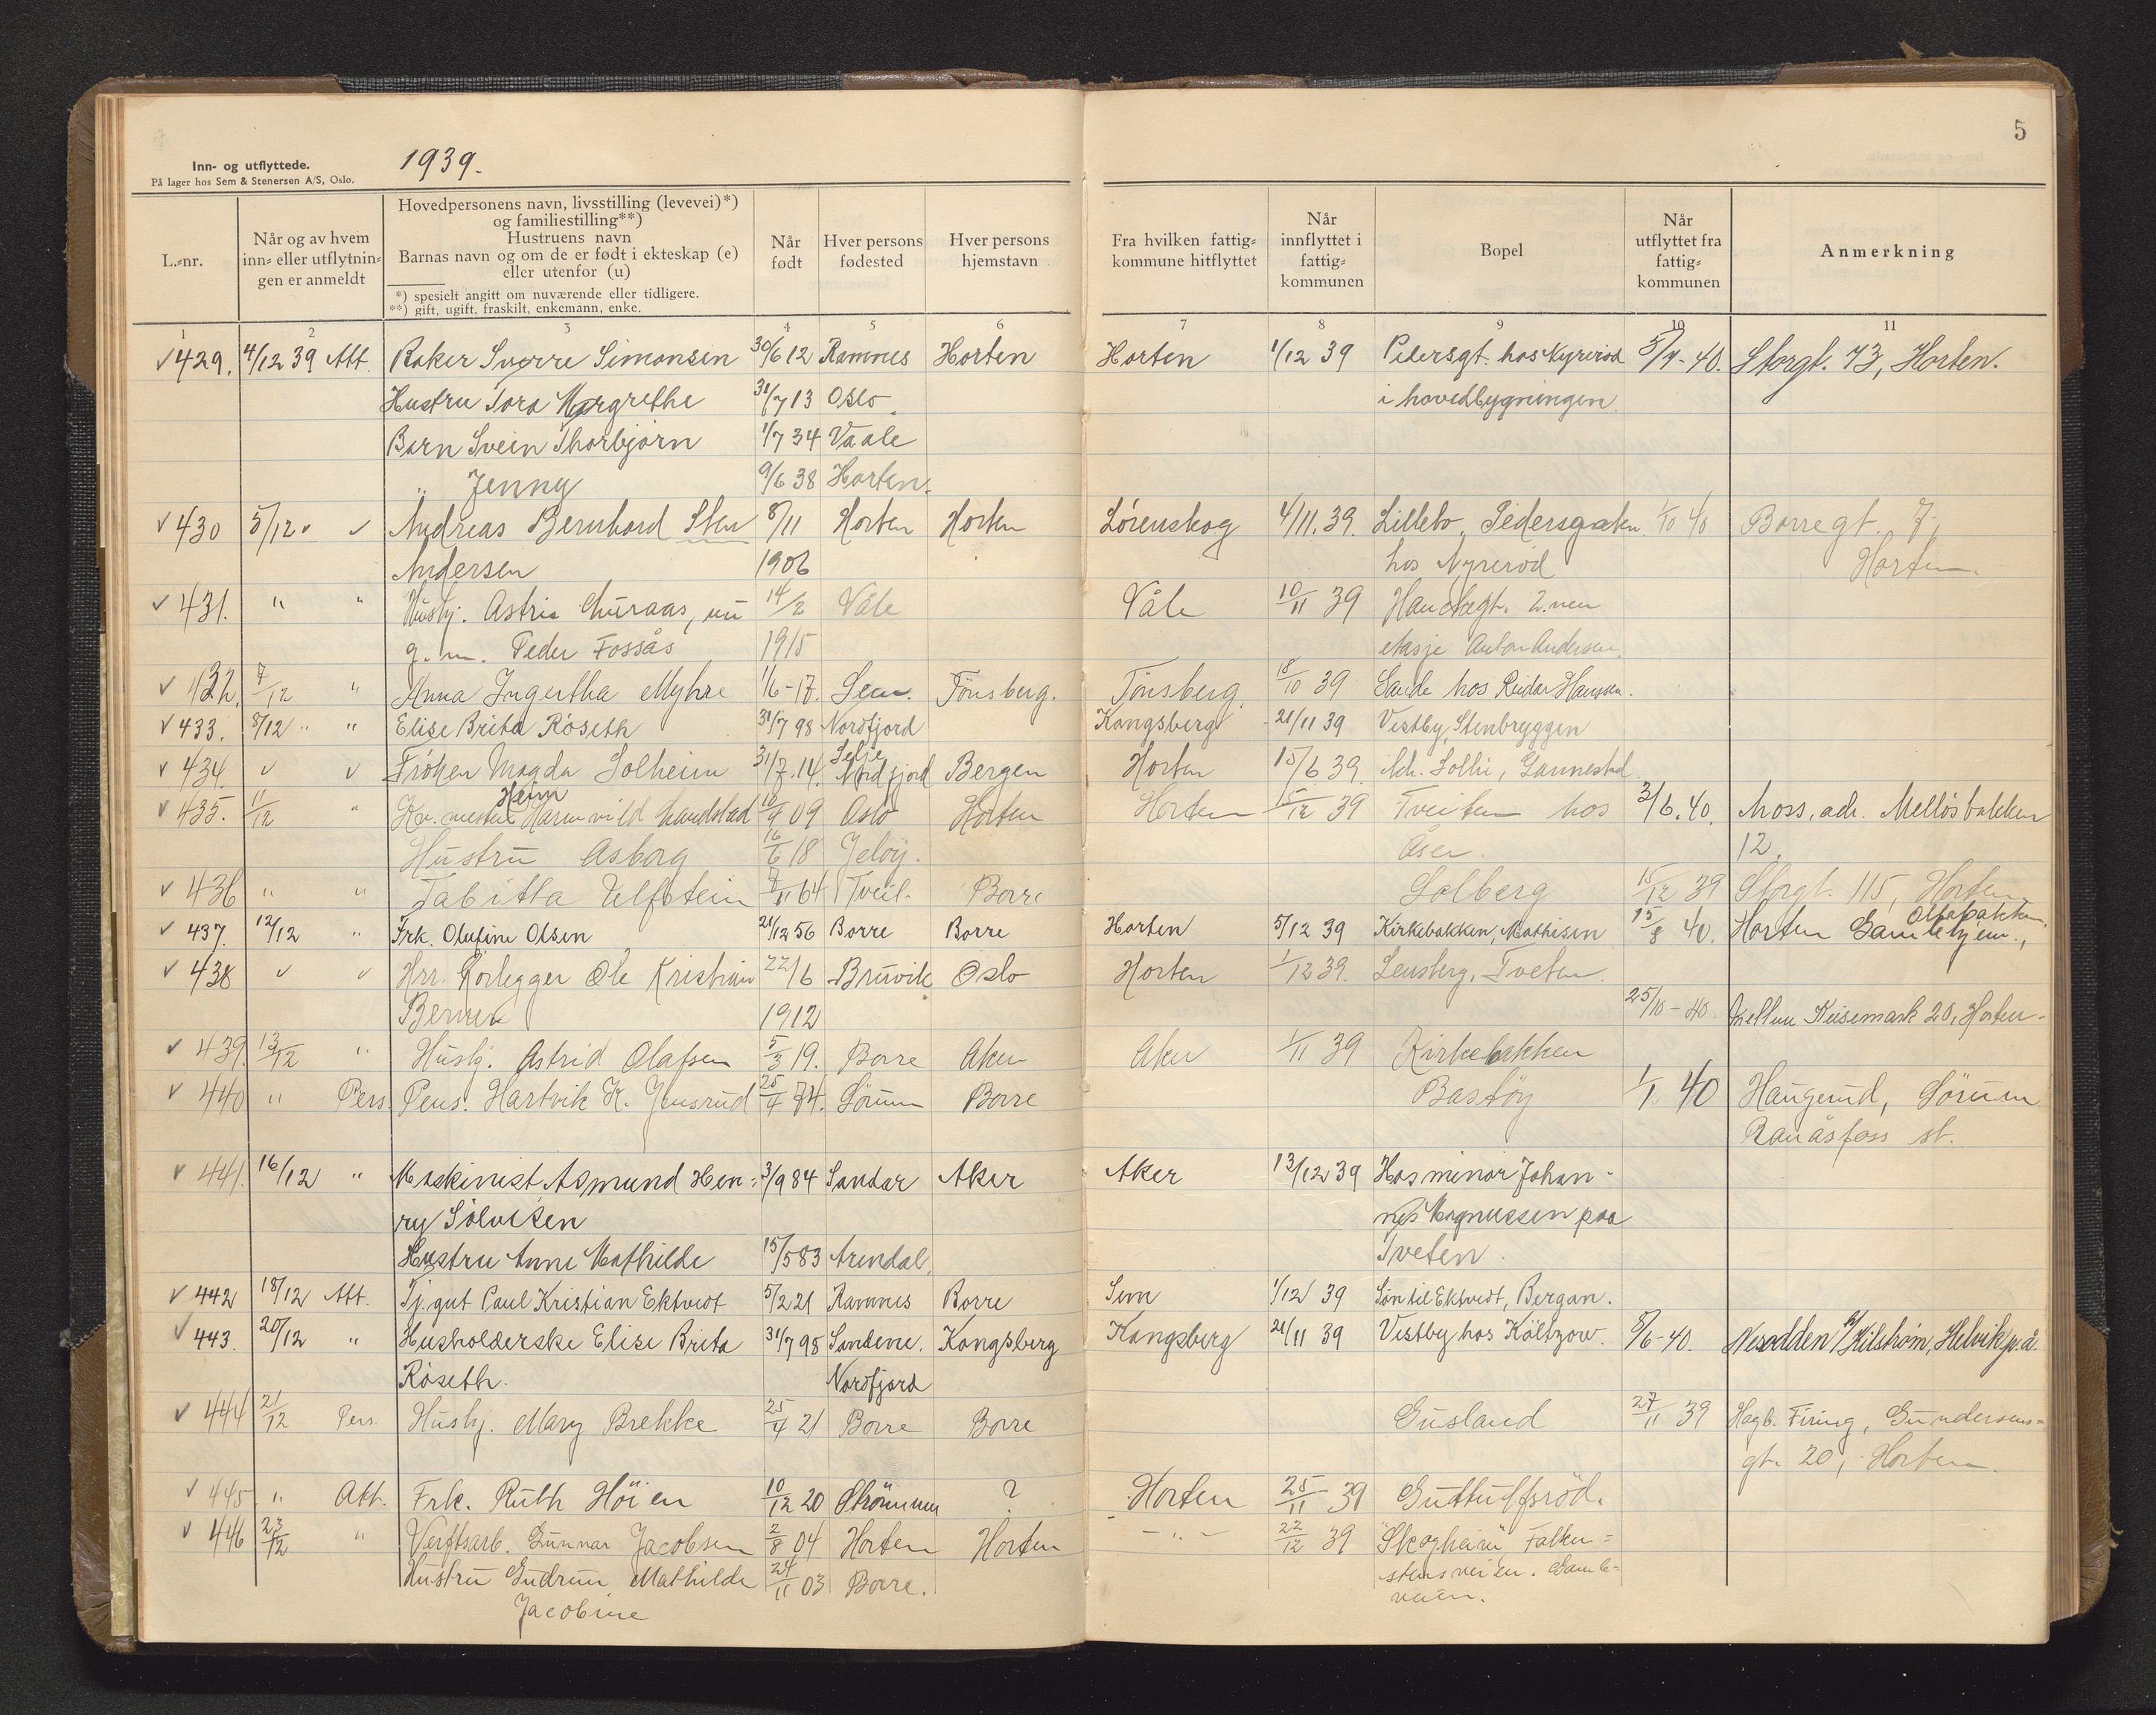 5
Inn- og utflyttede.
På lager hos Sem & Stenersen A/S, Oslo.
1939.
L.-nr.
Når og av hvem inn- eller utflytnin- gen er anmeldt
Hovedpersonens navn, livsstilling (levevei)*)
og familiestilling**)
Hustruens navn
Barnas navn og om de er født i ekteskap (e)
eller utenfor (u)
*) spesielt angitt om nuværende eller tidligere.
**) gift, ugift, fraskilt, enkemann, enke.
Når født
Hver persons fødested
Hver persons hjemstavn
Fra hvilken fattig- kommune hitflyttet
Når innflyttet i fattig- kommunen
Bopel
Når utflyttet fra fattig- kommunen
Anmerkning
1 2 3 4 5 6 7 8 9 10 11
✓ 429. 4/12 39 Att. Baker Sverre Simonsen 30/6 12 Ramnes Horten Horten 1/12 39 Pedersgt. hos Nyrerød 5/4-40. Storgt. 73, Horten.
Hustru Tora Margrethe 31/7 13 Oslo i hovedbygningen
Barn Svein Thorbjørn 1/7 34 Vaale
" Jenny 9/6 38 Horten.
✓ 430 5/12 " ✓ Andreas Bernhard Sten 8/11 Horten Horten Lörenskog 4/11. 39. Lillebo, Pedersgaten 1/10 40 Borregt. 7,
Andersen 1906 hos Nyreröd Horten.
✓ 431. " " Hushj. Astrid, nu 14/2 Våle Våle 10/11 39 2. nen
g. m. Peder Fossås 1915 etasje Anton Andersen.
✓ 432. 7/12 " Anna Ingertha Myhre 1/6-17. Sem. Tönsberg. Tönsberg. 18/10 39 Sande hos Reidar Hanssen.
✓ 433. 8/12 " " Elise Brita Röseth 31/7 98 Nordfjord Kongsberg 21/11 39 Vestby, Stenbryggen
✓ 434. ✓ ✓ Frøken Magda Solheim 31/7. 14. Selje Nordfjord Bergen Horten 15/6 39. Adr. Sollie, Gannestad
✓ 435. 11/12 " Heim 10/4 09 Oslo Horten Horten 5/12 39 Tveiten hos 3/6. 40. Moss, adr. Mellösbakken
Hustru Asborg 16/6 18 Jelöy. Åsen. 12.
✓ 436 " " Tabitta Ulfstein 7/11 64 Tveit. Borre Solberg 15/12 39 Storgt. 115, Horten
✓ 437. 12/12 " Frk. Olufine Olsen 21/12 56 Borre Borre Horten 5/12 39 Kirkebakken, Mathisen 15/8 40. Horten Gamlehjem,
✓ 438 ✓ ✓ Hrr. Rörlegger Ole Kristian 22/6 Bruvik Oslo Horten 1/12 39. Lensberg, Tveten.
1912 25/10-40. Mellem Keisemark 20, Horten.
✓ 439. 13/12 " Hushj. Astrid Olafsen 5/3 19. Borre Aker Aker 1/11 39 Kirkebakken
✓ 440 " Pers Pens. Hartvik K. Jensrud 25/4 74. Sörum Borre Bastöy 1/1 40 Haugerud, Sörum
Rånåsfoss st.
✓ 441. 16/12 " Maskinist Asmund Hen- 3/9 84 Sandar Aker Aker 13/12 39 Hos minör Johan-
ry Sölvesen nes Magnussen paa
Hustru Anne Mathilde 15/5 83 Arendal, Tveten.
✓ 442 18/12 Att. Tj.gut Paul Kristian Ektvedt 5/2 21 Ramnes Borre Sem 1/12 39 Søn til Ektvedt, Bergan.
✓ 443. 20/12 " Husholderske Elise Brita 31/7 98 Sandene. Kongsberg Kongsberg 21/11 39 Vestby hos Költzow. 8/6-40. Nesodden Hilström, Helvik p.å.
Röseth. Nordfjord
✓ 444 21/12 Pers. Hushj. Mary Brekke 25/4 21 Borre Borre Gusland 27/11 39 Hagb. Firing, Gundersens-
gt. 20, Horten.
✓ 445. " Att. Frk. Ruth Höien 10/12 20 ? Horten 25/11 39 Guttulfsröd.
✓ 446 23/12 " Verftsarb. Gunnar Jacobsen 2/8 04 Horten Horten - " - 22/12 39 "Skogheim" Falken-
Hustru Gudrun Mathilde 24/11 03 Borre. stensveien. Gamle-
Jacobine veien.